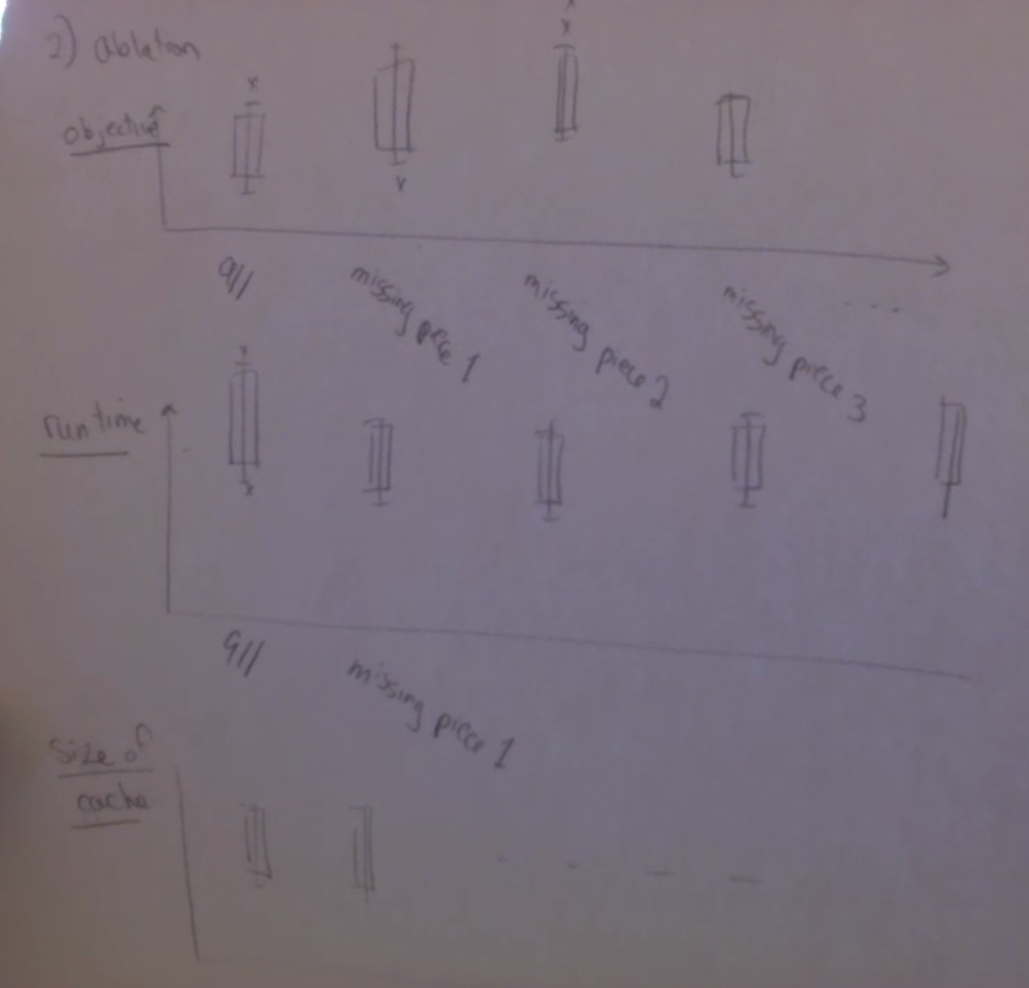 2) ablation
objective
all
missing piece 1
missing piece 2
missing piece 3
...
runtime
all
missing piece 1
size of
cache